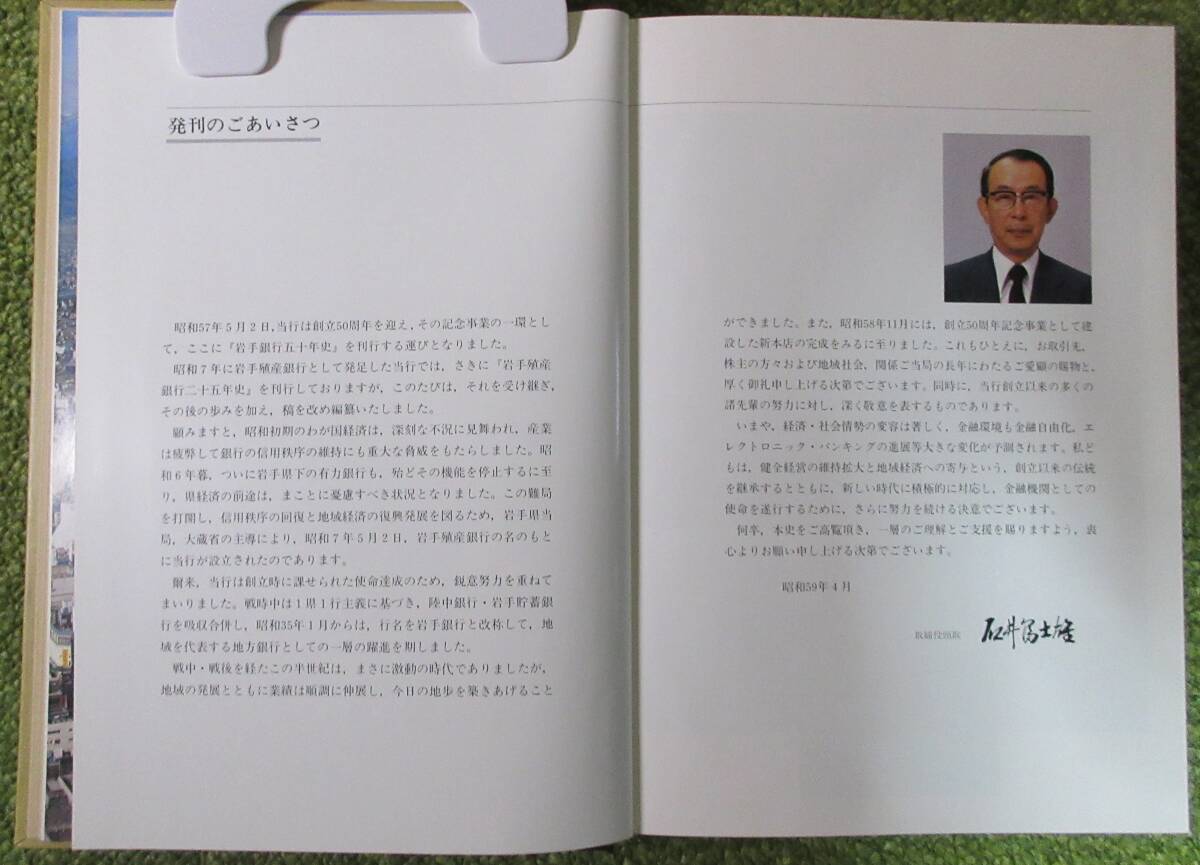 発刊のごあいさつ
昭和57年5月2日,当行は創立50周年を迎え,その記念事業の一環とし
て,ここに『岩手銀行五十年史』を刊行する運びとなりました。
昭和7年に岩手殖産銀行として発足した当行では,さきに『岩手殖産
銀行二十五年史』を刊行しておりますが,このたびは,それを受け継ぎ,
その後の歩みを加え,稿を改め編纂いたしました。
顧みますと,昭和初期のわが国経済は,深刻な不況に見舞われ,産業
は疲弊して銀行の信用秩序の維持にも重大な脅威をもたらしました。昭
和6年暮,ついに岩手県下の有力銀行も,殆どその機能を停止するに至
り,県経済の前途は,まことに憂慮すべき状況となりました。この難局
を打開し,信用秩序の回復と地域経済の復興発展を図るため,岩手県当
局,大蔵省の主導により,昭和7年5月2日,岩手殖産銀行の名のもと
に当行が設立されたのであります。
爾来,当行は創立時に課せられた使命達成のため,鋭意努力を重ねて
まいりました。戦時中は1県1行主義に基づき,陸中銀行・岩手貯蓄銀
行を吸収合併し,昭和35年1月からは,行名を岩手銀行と改称して,地
域を代表する地方銀行としての一層の躍進を期しました。
戦中・戦後を経たこの半世紀は,まさに激動の時代でありましたが,
地域の発展とともに業績は順調に伸展し,今日の地歩を築きあげること
ができました。また,昭和58年11月には,創立50周年記念事業として建
設した新本店の完成をみるに至りました。これもひとえに,お取引先,
株主の方々および地域社会,関係ご当局の長年にわたるご愛顧の賜物と,
厚く御礼申し上げる次第でございます。同時に,当行創立以来の多くの
諸先輩の努力に対し,深く敬意を表するものであります。
いまや,経済・社会情勢の変容は著しく,金融環境も金融自由化,エ
レクトロニック・バンキングの進展等大きな変化が予測されます。私ど
もは,健全経営の維持拡大と地域経済への寄与という,創立以来の伝統
を継承するとともに,新しい時代に積極的に対応し,金融機関としての
使命を遂行するために,さらに努力を続ける決意でございます。
何卒,本史をご高覧頂き,一層のご理解とご支援を賜りますよう,衷
心よりお願い申し上げる次第でございます。
昭和59年4月
取締役頭取 石井富士雄